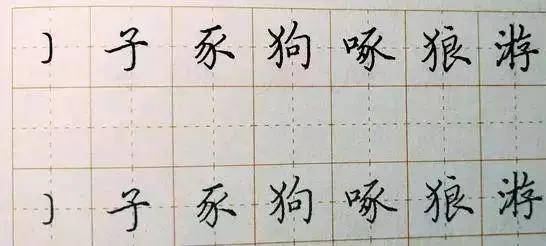 ㇁ 子 豕 狗 啄 狼 游
㇁ 子 豕 狗 啄 狼 游